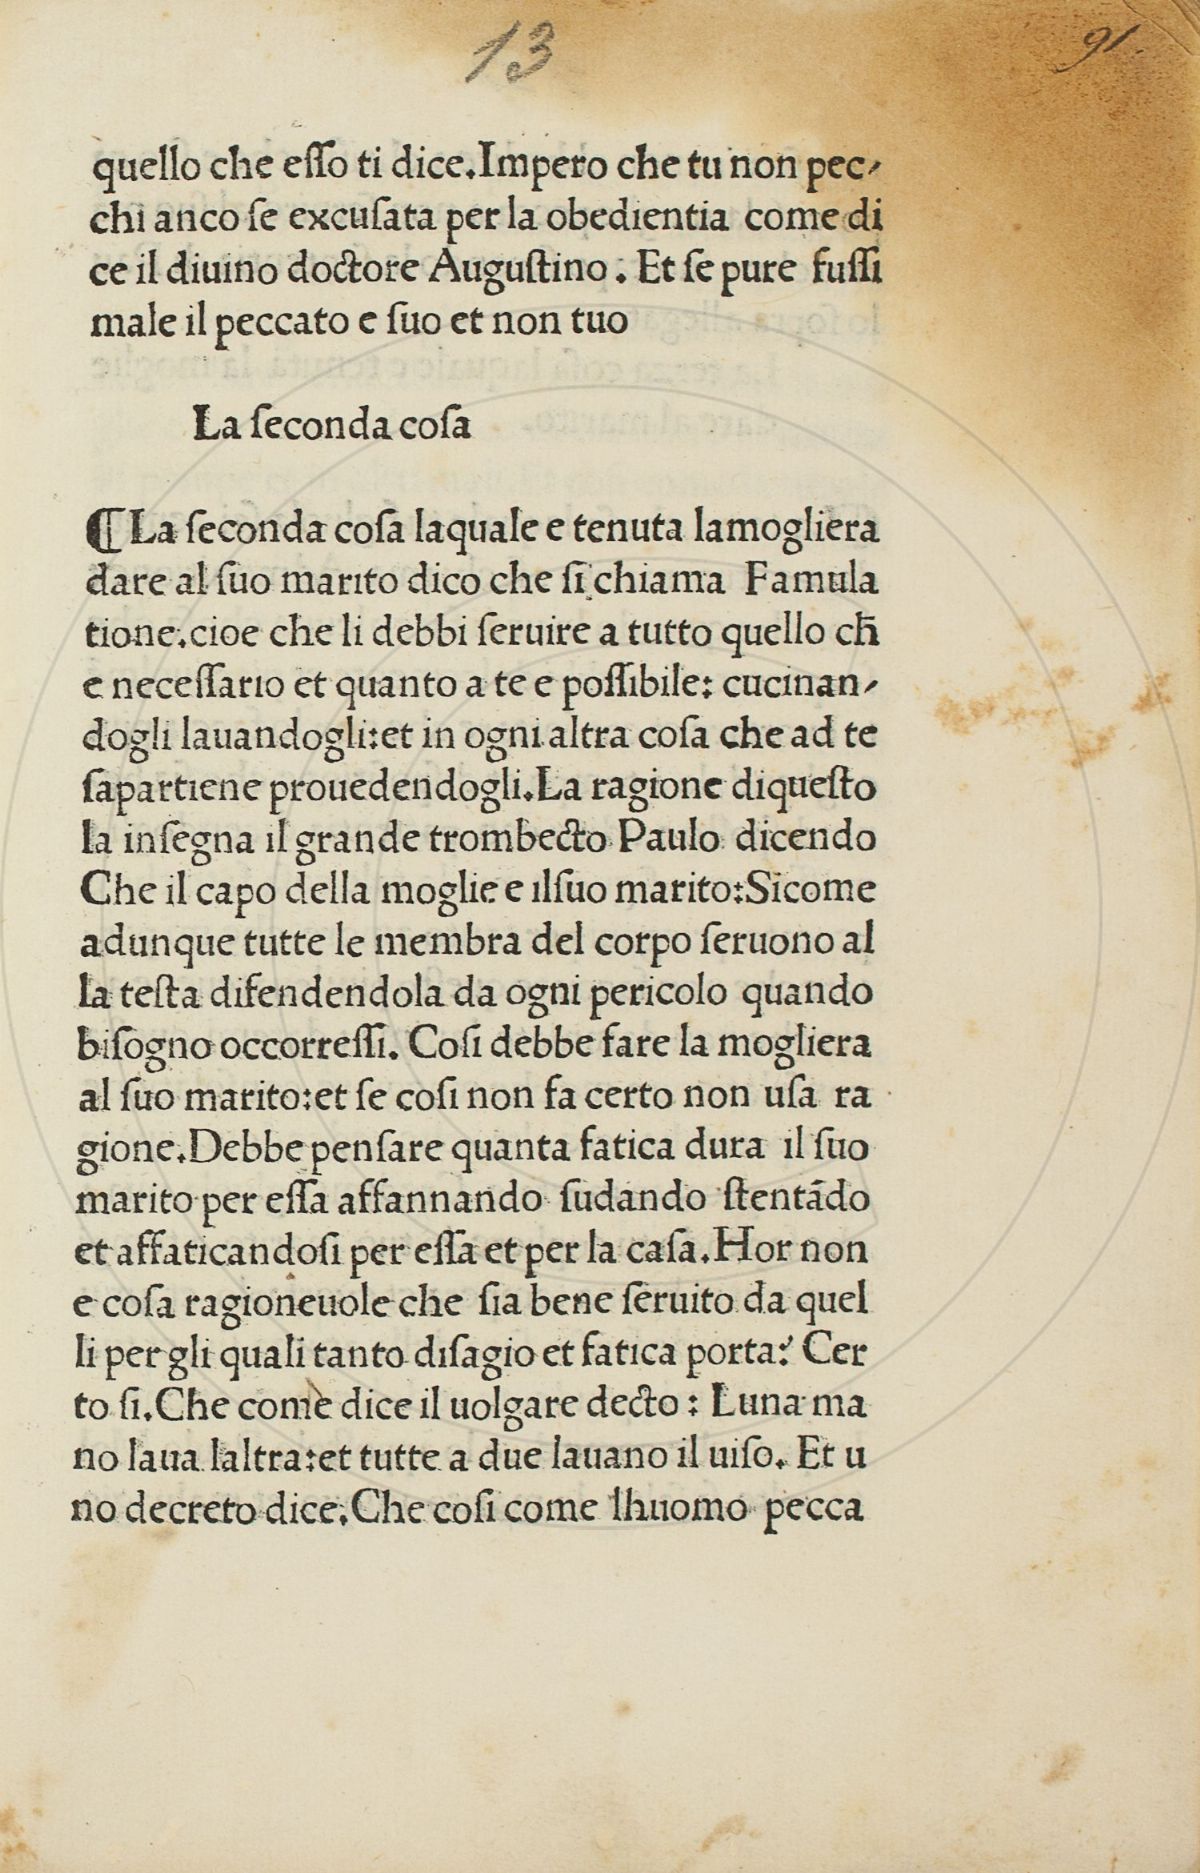 13
91.
quello che eſſo ti dice.Impero che tu non pec⸗
chi anco ſe excuſata per la obedientia come di
ce il diuino doctore Auguſtino . Et ſe pure fuſſi
male il peccato e ſuo et non tuo
La ſeconda coſa
¶ La ſeconda coſa laquale e tenuta lamogliera
dare al ſuo marito dico che ſi chiama Famula
tione.cioe che li debbi ſeruire a tutto quello ch̄
e neceſſario et quanto a te e poſſibile: cucinan⸗
dogli lauandogli:et in ogni altra coſa che ad te
ſapartiene prouedendogli.La ragione diqueſto
la inſegna il grande trombecto Paulo dicendo
Che il capo della moglie e ilſuo marito:Sicome
adunque tutte le membra del corpo ſeruono al
la teſta difendendola da ogni pericolo quando
biſogno occorreſſi. Coſi debbe fare la mogliera
al ſuo marito:et ſe coſi non fa certo non uſa ra
gione.Debbe penſare quanta fatica dura il ſuo
marito per eſſa affannando ſudando ſtentādo
et affaticandoſi per eſſa et per la caſa.Hor non
e coſa ragioneuole che ſia bene ſeruito da quel
li per gli quali tanto diſagio et fatica porta? Cer
to ſi.Che come dice il uolgare decto : Luna ma
no laua laltra:et tutte a due lauano il uiſo. Et u
no decreto dice.Che coſi come lhuomo pecca